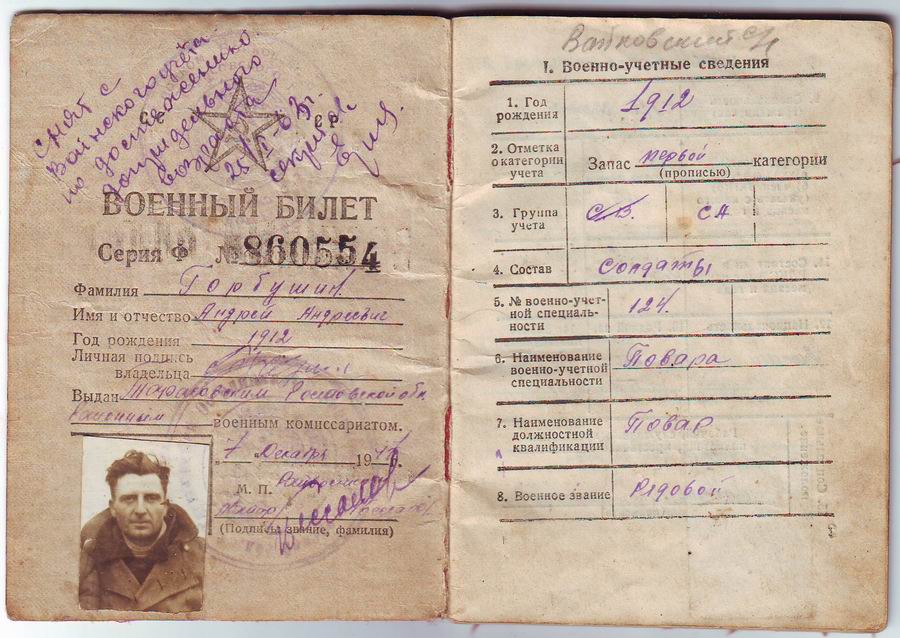 Снят с
воинского учёта
по достижению
предельного
возраста
25/I-63г.
СССР
ВОЕННЫЙ БИЛЕТ
Серия Ф № 860554
Фамилия Горбушин
Имя и отчество Андрей Андреевич
Год рождения 1912
Личная подпись
владельца
Выдан Ростовской обл.
военным комиссариатом.
„7" декабря 1947г.
М. П.
(Подпись, звание, фамилия)
Войковский
I. Военно-учетные сведения
1. Год
рождения
1912
2. Отметка
о категории
учета
Запас первой категории
(прописью)
3. Группа
учета
СВ. СА
4. Состав
Солдаты
5. № военно-учет-
ной специаль-
ности
124.
6. Наименование
военно-учетной
специальности
Повара
7. Наименование
должностной
квалификации
Повар
8. Военное звание
Рядовой